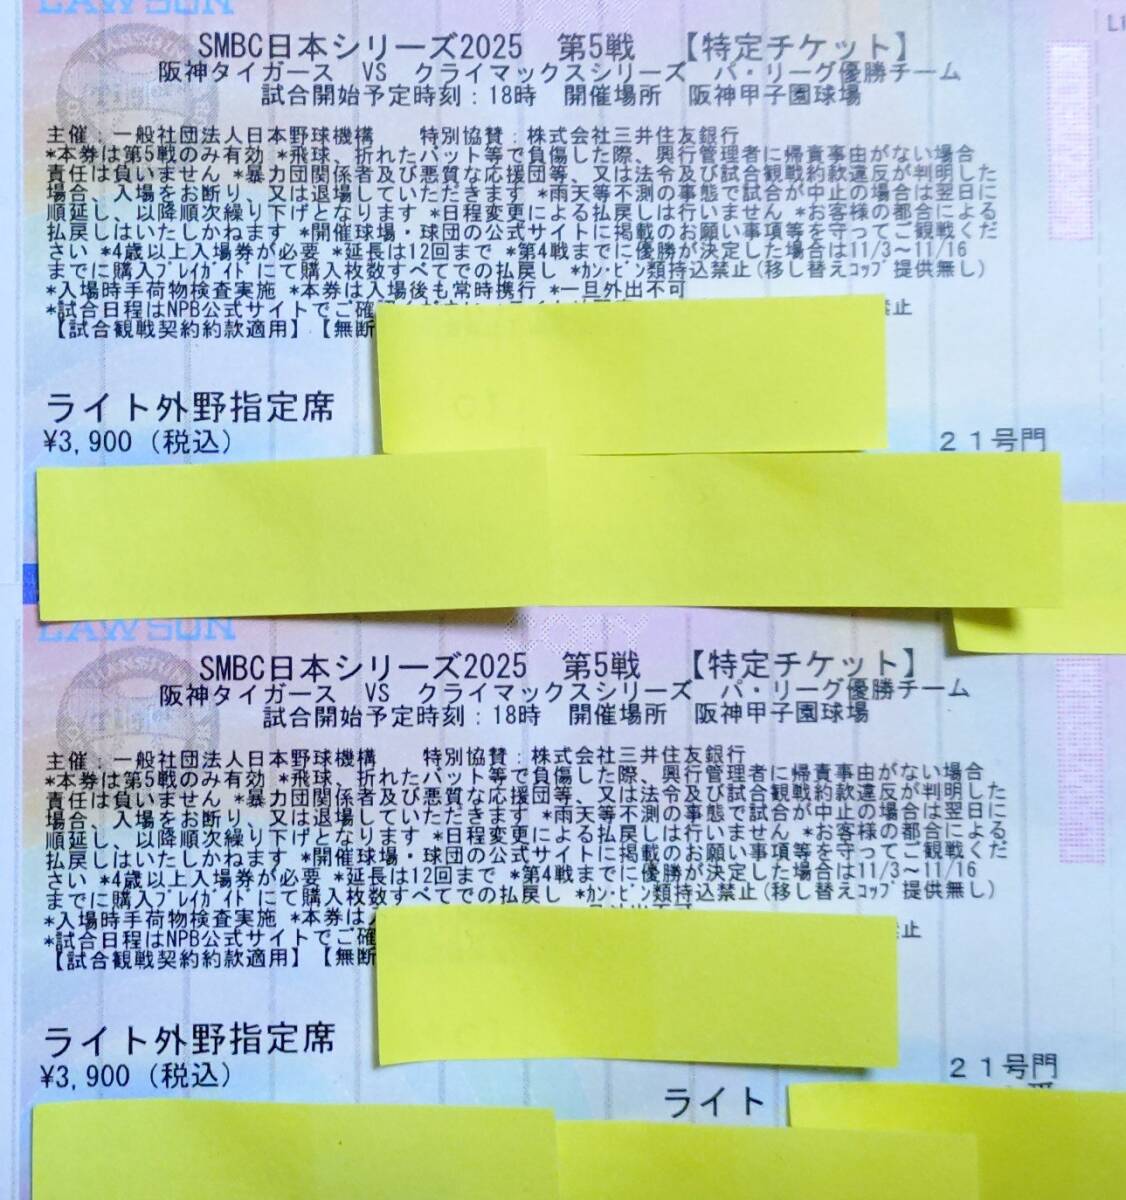 LAWSON
SMBC日本シリーズ2025 第5戦 【特定チケット】
阪神タイガース VS クライマックスシリーズ パ・リーグ優勝チーム
試合開始予定時刻:18時 開催場所 阪神甲子園球場
主催:一般社団法人日本野球機構 特別協賛:株式会社三井住友銀行
*本券は第5戦のみ有効 *飛球、折れたバット等で負傷した際、興行管理者に帰責事由がない場合
責任は負いません *暴力団関係者及び悪質な応援団等、又は法令及び試合観戦約款違反が判明した
場合、入場をお断り、又は退場していただきます *雨天等不測の事態で試合が中止の場合は翌日に
順延し、以降順次繰り下げとなります *日程変更による払戻しは行いません *お客様の都合による
払戻しはいたしかねます *開催球場・球団の公式サイトに掲載のお願い事項等を守ってご観戦くだ
さい *4歳以上入場券が必要 *延長は12回まで *第4戦までに優勝が決定した場合は11/3～11/16
までに購入ﾌﾟﾚｲｶﾞｲﾄﾞにて購入枚数すべてでの払戻し *ｶﾝ･ﾋﾞﾝ類持込禁止(移し替えｺｯﾌﾟ提供無し)
*入場時手荷物検査実施 *本券は入場後も常時携行 *一旦外出不可
*試合日程はNPB公式サイトでご確 禁止
【試合観戦契約約款適用】【無断
ライト外野指定席
¥3,900 (税込)
21号門
LAWSON
SMBC日本シリーズ2025 第5戦 【特定チケット】
阪神タイガース VS クライマックスシリーズ パ・リーグ優勝チーム
試合開始予定時刻:18時 開催場所 阪神甲子園球場
主催:一般社団法人日本野球機構 特別協賛:株式会社三井住友銀行
*本券は第5戦のみ有効 *飛球、折れたバット等で負傷した際、興行管理者に帰責事由がない場合
責任は負いません *暴力団関係者及び悪質な応援団等、又は法令及び試合観戦約款違反が判明した
場合、入場をお断り、又は退場していただきます *雨天等不測の事態で試合が中止の場合は翌日に
順延し、以降順次繰り下げとなります *日程変更による払戻しは行いません *お客様の都合による
払戻しはいたしかねます *開催球場・球団の公式サイトに掲載のお願い事項等を守ってご観戦くだ
さい *4歳以上入場券が必要 *延長は12回まで *第4戦までに優勝が決定した場合は11/3～11/16
までに購入ﾌﾟﾚｲｶﾞｲﾄﾞにて購入枚数すべてでの払戻し *ｶﾝ･ﾋﾞﾝ類持込禁止(移し替えｺｯﾌﾟ提供無し)
*入場時手荷物検査実施 *本券は
*試合日程はNPB公式サイトでご確 止
【試合観戦契約約款適用】【無断
ライト外野指定席
¥3,900 (税込)
21号門
ライト